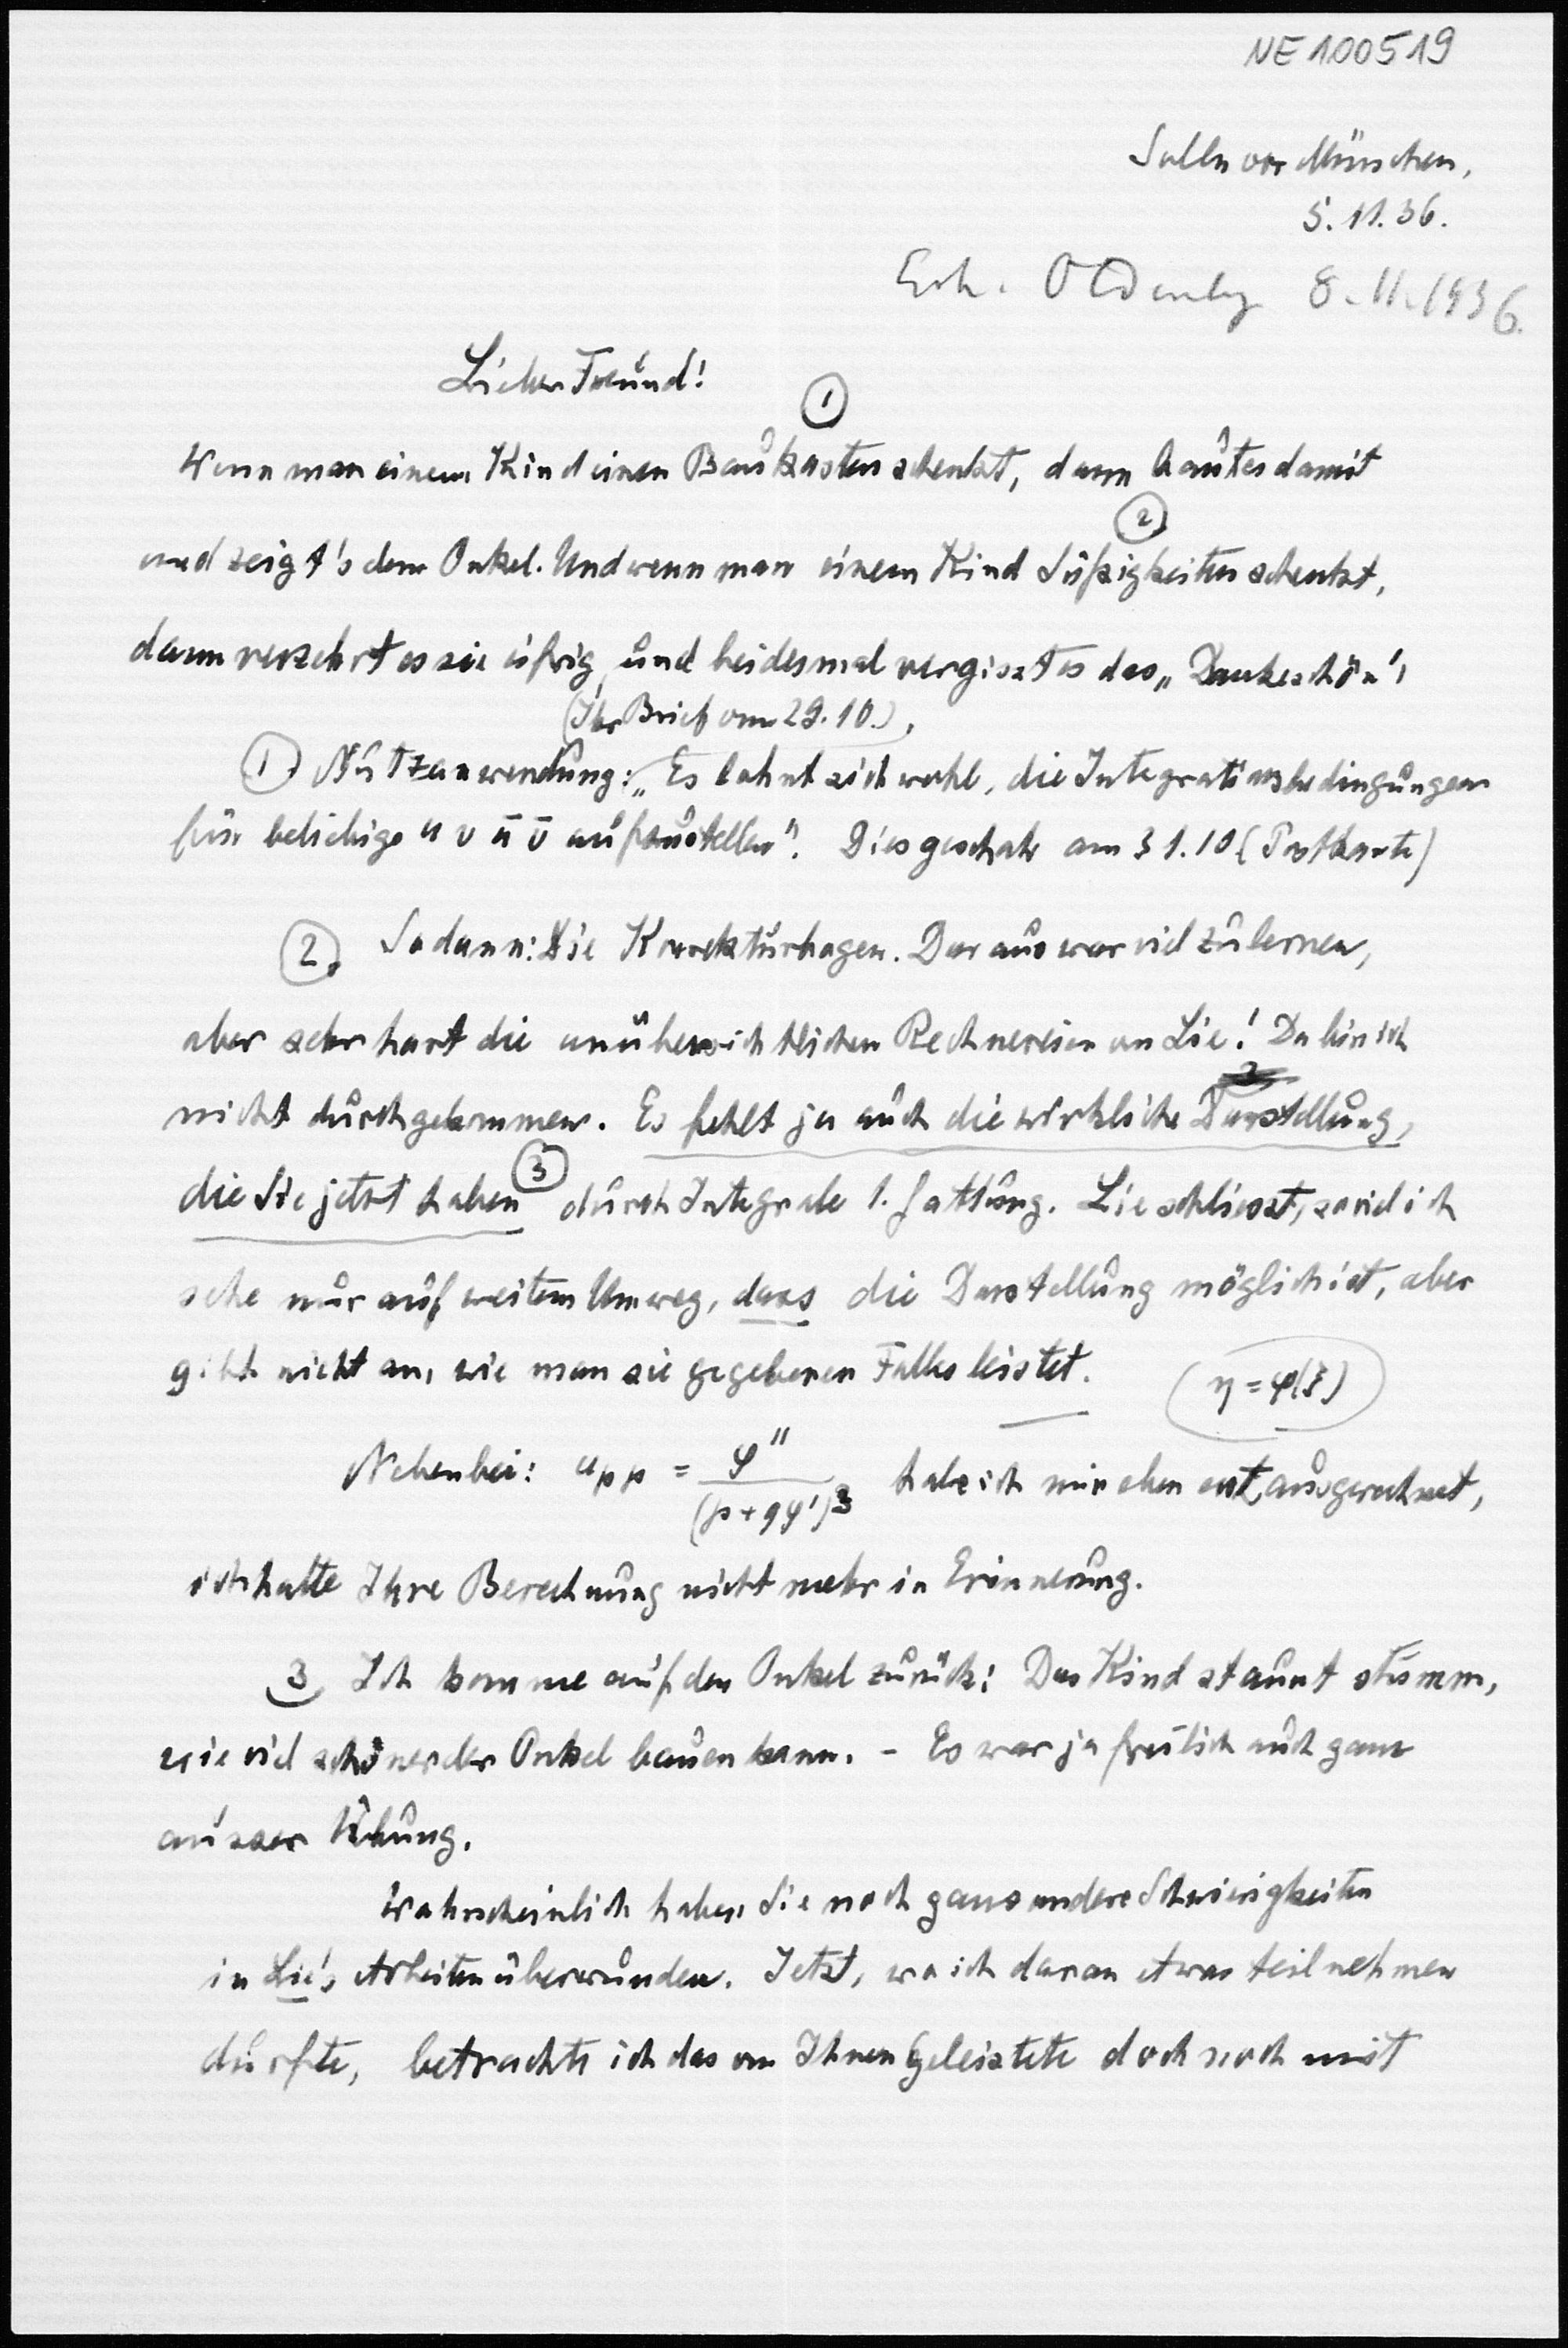 NE 100519
Solln vor München,
5. 11. 36.
Erh. Oldenbg 8. 11. 1936.
Lieber Freund!
①
Wenn man einem Kind einen Baukasten schenkt, dann baut es damit
②
und zeigt's dem Onkel. Und wenn man einem Kind Süßigkeiten schenkt,
dann verzehrt es sie eifrig, und beidesmal vergisst es das „Dankeschön"!
(Ihr Brief vom 29.10.),
① Nutzanwendung: „Es lohnt sich wohl, die Integrationsbedingungen
für beliebige u v ū v̄ aufzustellen". Dies geschah am 31.10 (Postkarte)
②. Sodann: Die Korrekturbogen. Daraus war viel zu lernen,
aber sehr hart die unübersichtlichen Rechnereien von Lie! Da bin ich
nicht durchgekommen. Es fehlt ja auch die wirkliche Darstellung,
die Sie jetzt haben ③ durch Integrale 1. Gattung. Lie schliesst, soviel ich
sehe nur auf weitem Umweg, dass die Darstellung möglich ist, aber
gibt nicht an, wie man sie gegebenen Falles leistet. (η = φ(ξ))
Nebenbei: u_pp = φ'' / (p + qφ')³ habe ich mir eben erst ausgerechnet,
ich hatte Ihre Berechnung nicht mehr in Erinnerung.
3, Ich komme auf den Onkel zurück: Das Kind staunt stumm,
wie viel schöner der Onkel bauen kann. – Es war ja freilich auch ganz
ausser Übung.
Wahrscheinlich haben Sie noch ganz andere Schwierigkeiten
in Lie's Arbeiten überwunden. Jetzt, wo ich daran etwas teilnehmen
durfte, betrachte ich das von Ihnen Geleistete doch noch mit